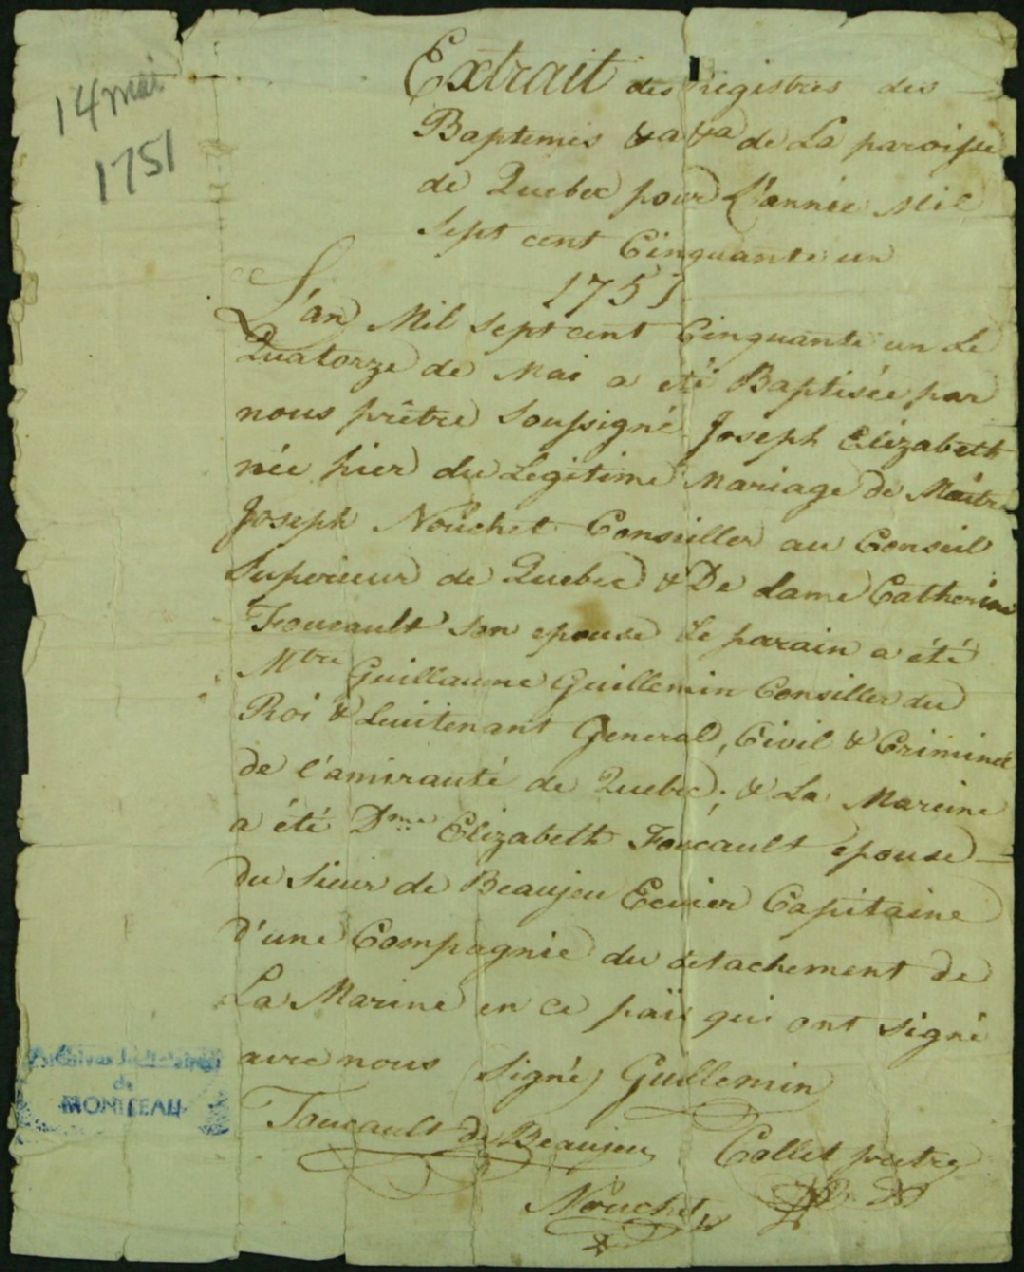 14 mai
1751
Extrait des registres des
Baptemes &a &a de La paroisse
de Quebec pour L'année Mil
Sept cent Cinquante un
1751
L'an Mil Sept cent Cinquante un Le
Quatorze de Mai a eté Baptisée par
nous prêtre Soussigné Joseph Elizabeth
née hier du Légitime Mariage de Maitre
Joseph Nouchet Conseiller au Conseil
Superieur de Quebec & De dame Catherine
Foucault son epouse Le parain a été
Mtre Guillaume Guillemin Consiller du
Roi & Lieutenant General, Civil & Criminel
de l'amirauté de Quebec; & La Mareine
a été Dme Elizabeth Foucault epouse
du Sieur de Beaujeu Ecuier Capitaine
d'une Compagnie du detachement de
La Marine en ce païs qui ont signé
avec nous (Signé) Guillemin
Foucault de Beaujeu Collet pretre
Nouchet
Archives Judiciaires
de
MONTREAL